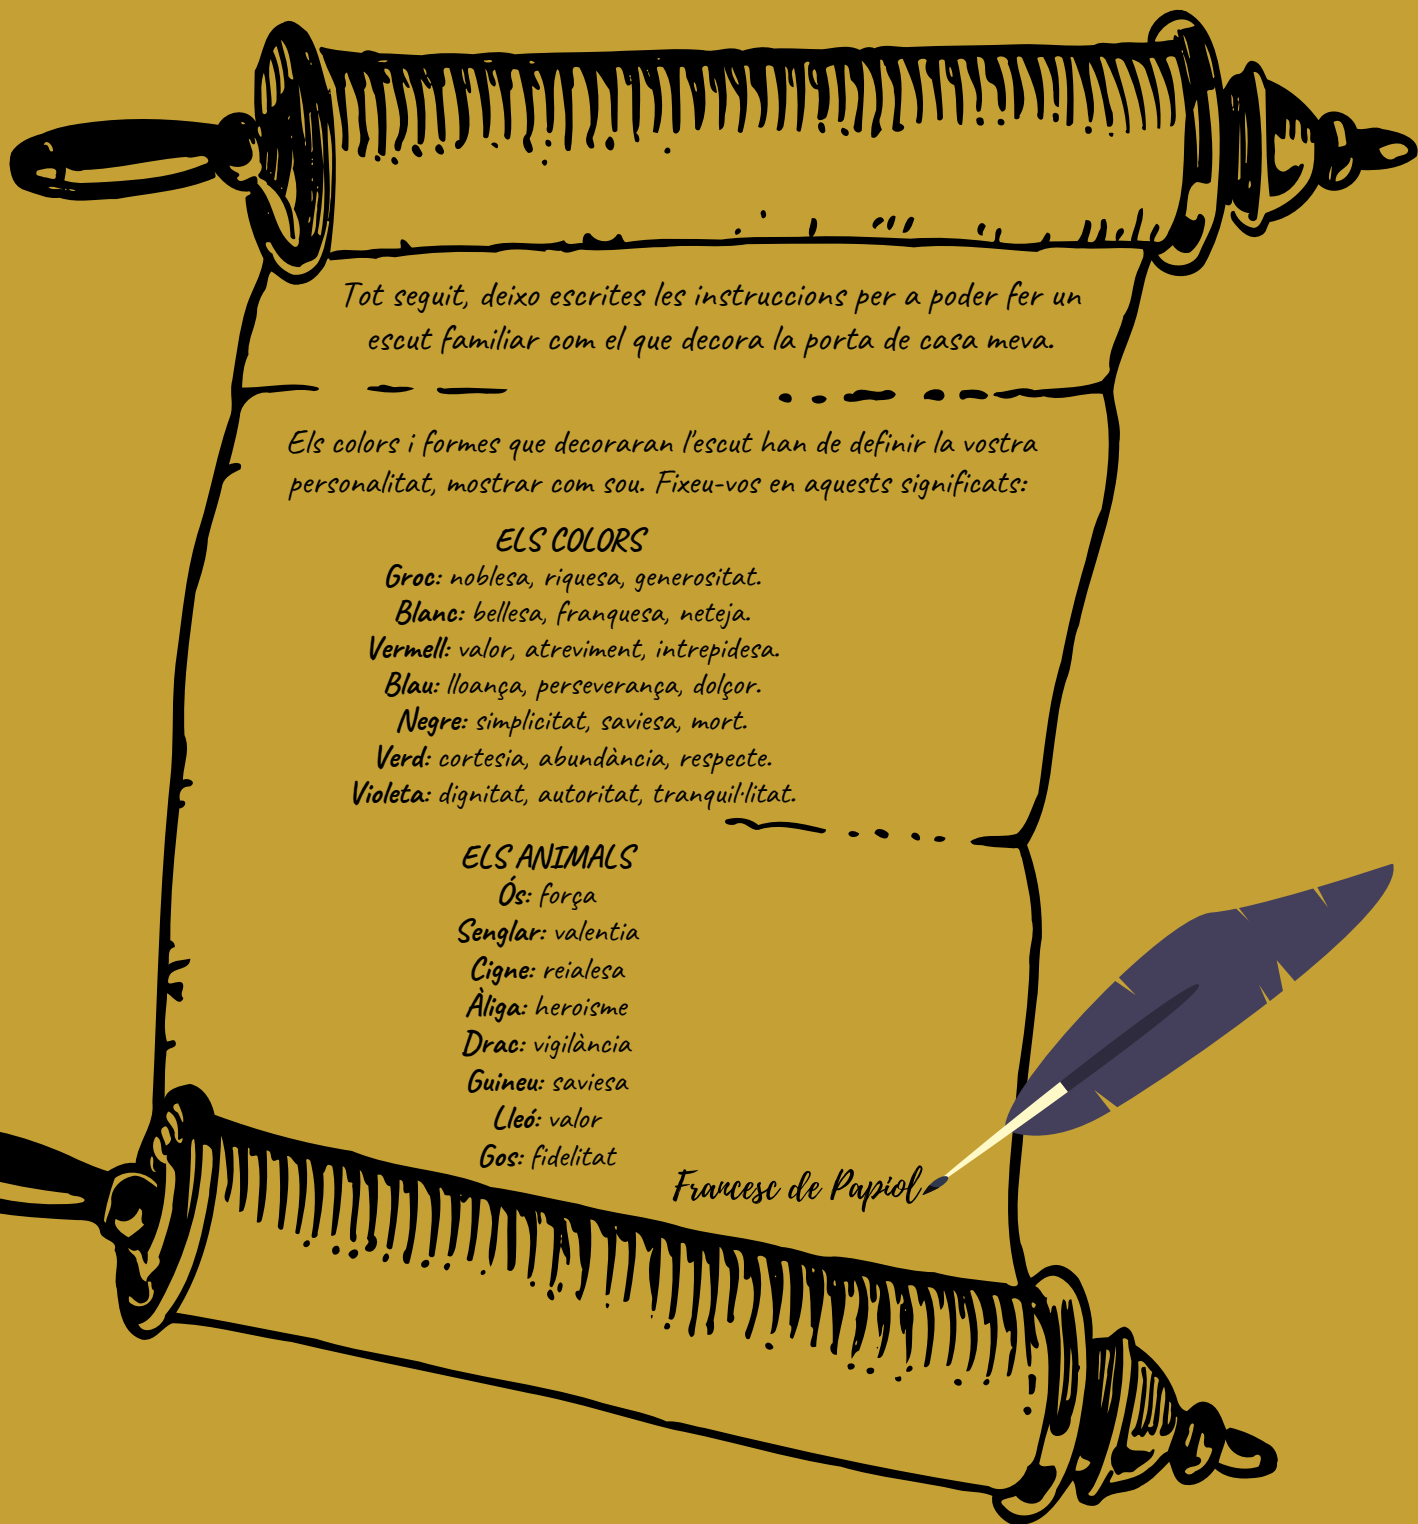 Tot seguit, deixo escrites les instruccions per a poder fer un
escut familiar com el que decora la porta de casa meva.
Els colors i formes que decoraran l'escut han de definir la vostra
personalitat, mostrar com sou. Fixeu-vos en aquests significats:
ELS COLORS
Groc: noblesa, riquesa, generositat.
Blanc: bellesa, franquesa, neteja.
Vermell: valor, atreviment, intrepidesa.
Blau: lloança, perseverança, dolçor.
Negre: simplicitat, saviesa, mort.
Verd: cortesia, abundància, respecte.
Violeta: dignitat, autoritat, tranquil·litat.
ELS ANIMALS
Ós: força
Senglar: valentia
Cigne: reialesa
Àliga: heroisme
Drac: vigilància
Guineu: saviesa
Lleó: valor
Gos: fidelitat
Francesc de Papiol